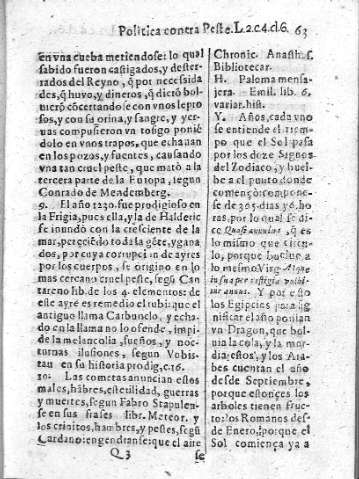 Politica contra Peste. L.2.c.4.cl.6. 63
en vna cueba metiendose: lo qual
sabido fueron castigados, y dester-
rados del Reyno, q̃ por necessida
des, q̃ huvo, y dineros, q̃ dictò bol-
mierò cõcertando se con vnos lepro
sos, y con su orina, y sangre, y yer-
uas compusieron vn tosigo ponié
dolo en vnos trapos, que echauan
en los pozos, y fuentes, causando
vna tan cruel peste, que matò a la
tercera parte de la Europa, segun
Conrado de Mendemberg.
9. El año 1230. fue prodigioso en
la Frigia, pues ella, y la de Halderic
se inundò con la cresciente de la
mar, pereciédo toda la géte, y gana
dos, por cuya corrupciò de ayres
por los cuerpos, se origino en lo
mas cercano cruel peste, segũ Can
tareno lib. de los 4. elementos: de
este ayre es remedio el rubi: que el
antiguo llama Carbunclo, y echa-
do en la llama no lo ofende, impi-
de la melancolia, sueños, y noc-
turnas ilusiones, segun Vobis-
tau en su historia prodig, c. 16.
10. Las cometas anuncian estos
males, hãbres, esterilidad, guerras
y muertes, segun Fabro Stapulen-
se en sus frases lib. Meteor. y
los crinitos, hambres, y pestes, segũ
Cardano: engendranse: que el aire
Q 3 se
Chronic. Anast. f.
Bibliotecar.
H. Paloma mensa-
jera. Emil. lib. 6.
variar. hist.
Y. Años, cada vno
se entiende el tiem-
po que el Sol pasa
por los doze Signos
del Zodiaco, y buel-
be a el punto donde
començò: compone-
se de 365. dias, y 6. ho
ras, por lo qual se di-
ce Quasi annulus, q̃ es
lo mismo que circu-
lo, porque buelue a
lo mesmo Virg. Atque
in sua per vestigia volbi-
tur annus. Y por esto
los Egipcios para sig-
nificar el año ponian
vn Dragon, que bol-
uia la cola, y la mor-
dia estos, y los Ara-
bes cuentan el año
desde Septiembre,
porque estonces los
arboles tienen fruc-
to: los Romanos des-
de Enero, porque el
Sol comiença ya a